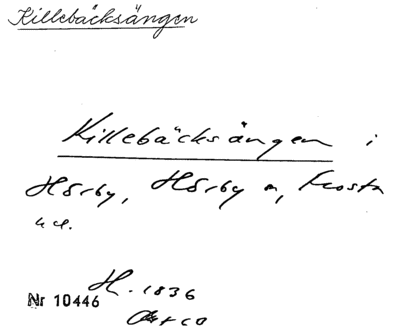 Killebäcksängen
Killebäcksängen i
Hörby, Hörby sn, Frosta
hd.
H. 1836
Nr 10446